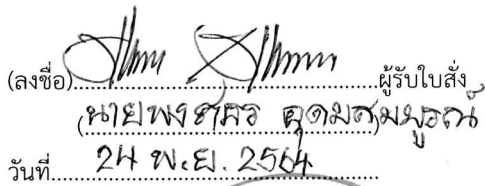 (ลงชื่อ)........................................ผู้รับใบสั่ง
(นายพงศธร อุดมสมบูรณ์)
วันที่ 24 พ.ย. 2564